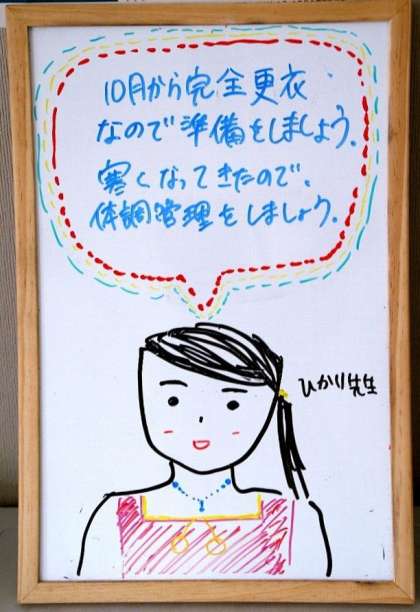 10月から完全更衣
なので準備をしましょう。
寒くなってきたので、
体調管理をしましょう。
ひかり先生